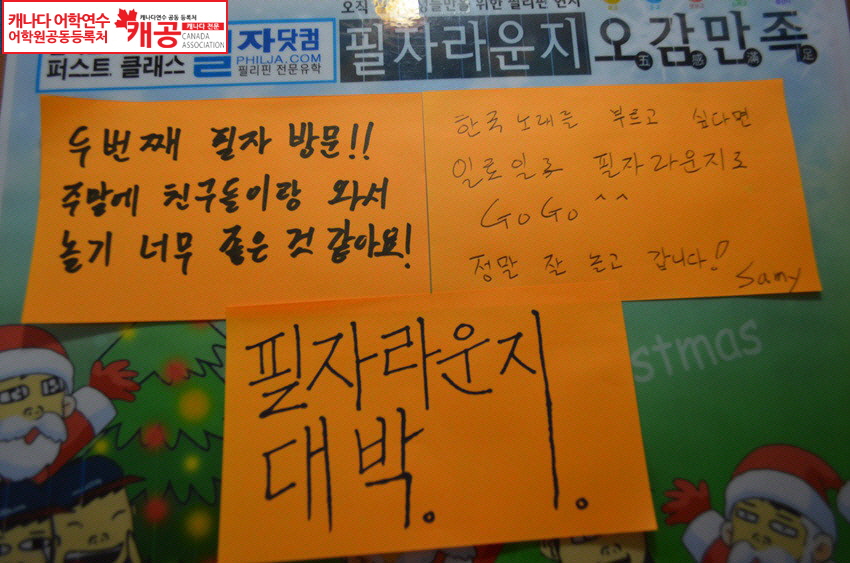 캐나다 어학연수
어학원공동등록처
캐나다연수 공동 등록처
캐나다 전문
캐공
CANADA
ASSOCIATION
퍼스트 클래스
필자닷컴
PHILJA.COM
필리핀 전문유학
필자라운지
오감만족
五 感 滿 足
두번째 필자 방문!!
주말에 친구들이랑 와서
놀기 너무 좋은 것 같아요!
한국노래를 부르고 싶다면
일로일로 필자라운지로
GoGo ^^
정말 잘 놀고 갑니다!
Samy
필자라운지.
대박.
stmas